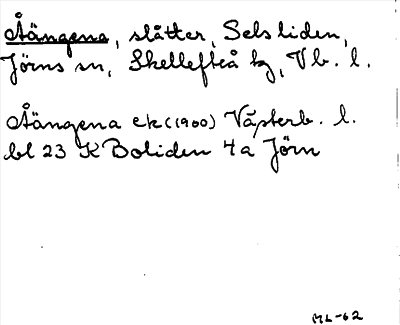 Åängena, slåtter, Selsliden,
Jörns sn, Skellefteå kg, Vb. l.
Åängena ek (1900) Västerb. l.
bl 23 K Boliden 4a Jörn
ML-62